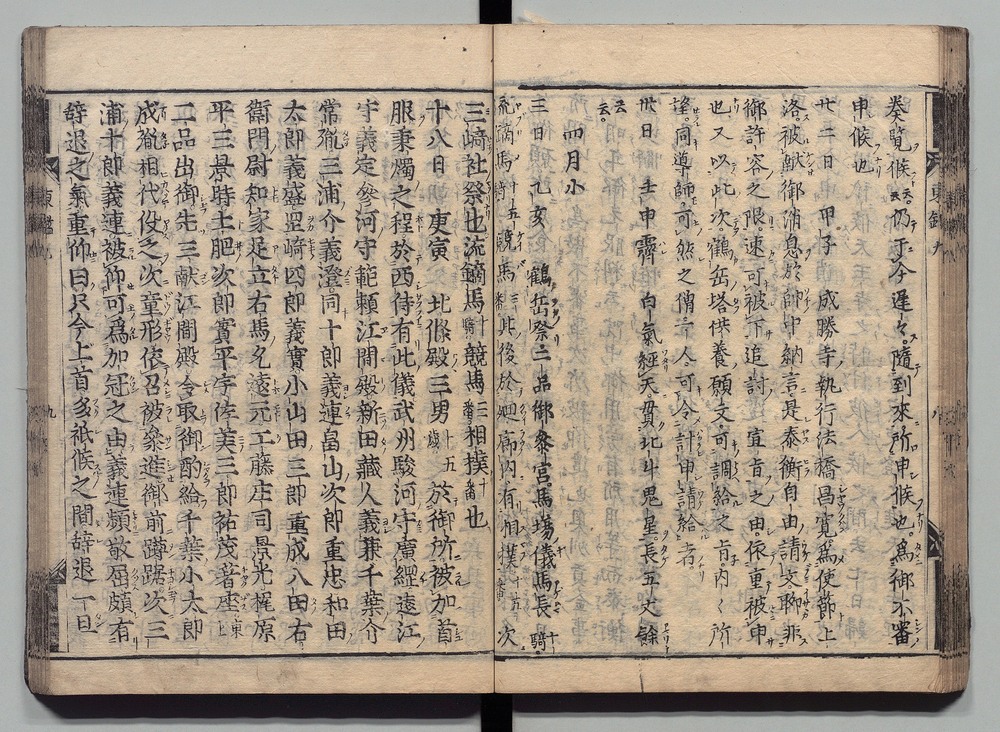 奏覽候云云仍于今遲々隨到來所申候也爲御不審
申候也
廿二日 甲子 成勝寺執行法橋昌寛爲使節上
洛被獻御消息於帥中納言是泰衡自由請文聊非
御許容之限速可被下追討宣旨之由依重被申
也又以此次鶴岳塔供養願文可調給之旨內〻所
望同導師可然之僧一人可令計申請給者
卅日 壬申 霽 白氣經天貫北斗魁星長五丈餘
云云
四月小
三日 乙亥 鶴岳祭二品御參宮馬塲儀馬長十騎
流鏑馬十五騎競馬三番此後於廻廊內有相撲十五番次
三嶋社祭也流鏑馬十騎競馬三番相撲十番也
十八日 庚寅 北條殿三男十五歲於御所被加首
服秉燭之程於西侍有此儀武州駿河守廣綱遠江
守義定參河守範賴江間殿新田藏人義兼千葉介
常胤三浦介義澄同十郎義連畠山次郎重忠和田
太郎義盛罡崎四郎義實小山田三郎重成八田右
衞門尉知家足立右馬允遠元工藤庄司景光梶原
平三景時土肥次郎實平宇佐美三郎祐茂著座東上
二品出御先三獻江間殿令取御酌給千葉小太郎
成胤相代役之次童形依召被參進御前蹲踞次三
浦十郎義連被仰可爲加冠之由義連頻敬屈頗有
辭退之氣重仰曰只今上首多祇候之間辭退一旦